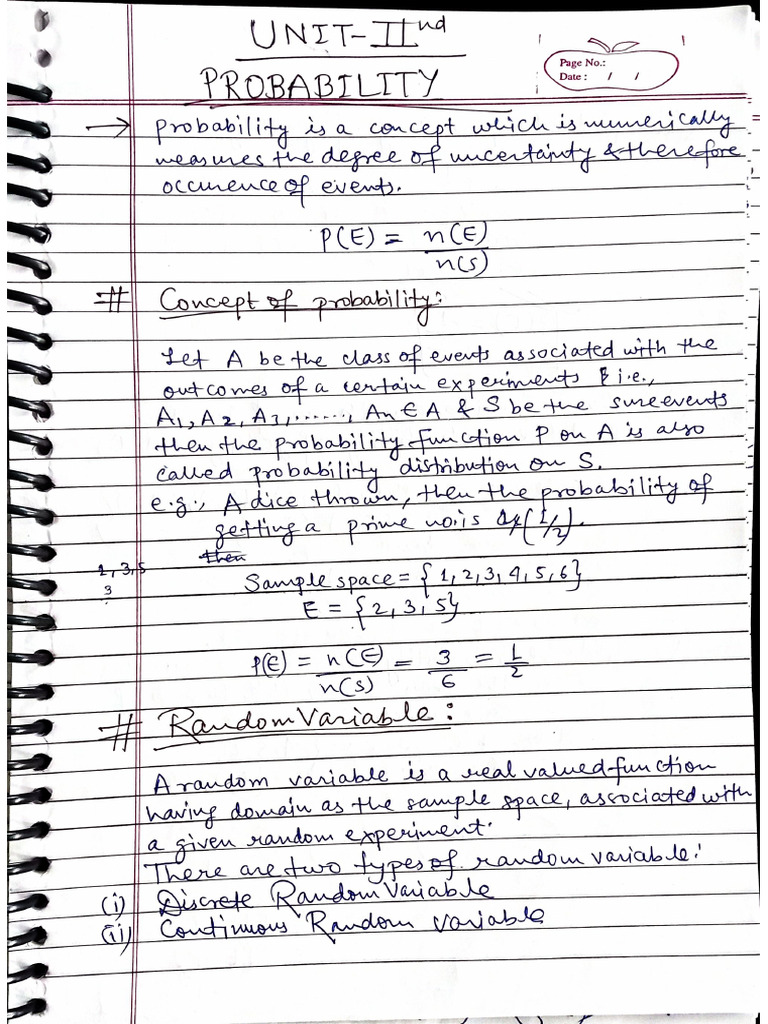 UNIT-IInd
PROBABILITY
Page No.:
Date : / /
→ probability is a concept which is numerically
measures the degree of uncertainty & therefore
occurence of events.
P(E) = n(E)/n(S)
# Concept of probability:
Let A be the class of events associated with the
outcomes of a certain experiments i.e.,
A1, A2, A3, ......, An ∈ A & S be the sure events
then the probability function P on A is also
called probability distribution on S.
e.g., A dice thrown, then the probability of
getting a prime no is (1/2).
then
1, 3, 5
3
Sample space = {1, 2, 3, 4, 5, 6}
E = {2, 3, 5}
P(E) = n(E)/n(S) = 3/6 = 1/2
# Random Variable:
A random variable is a real valued function
having domain as the sample space, associated with
a given random experiment.
There are two types of random variable:
(i) Discrete Random Variable
(ii) Continuous Random variable